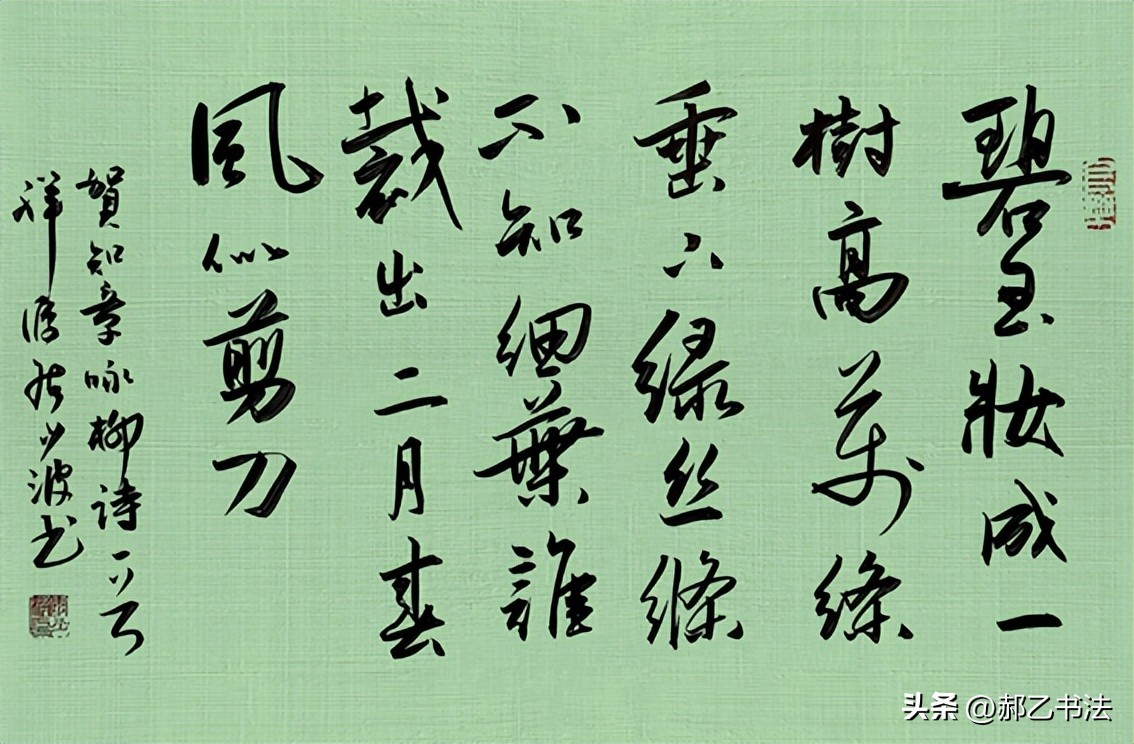 碧玉妝成一
樹高萬絛
垂下綠丝縧
不知細葉誰
裁出二月春
風似剪刀
賀知章咏柳詩一首
祥少波书
头条 @郝乙书法